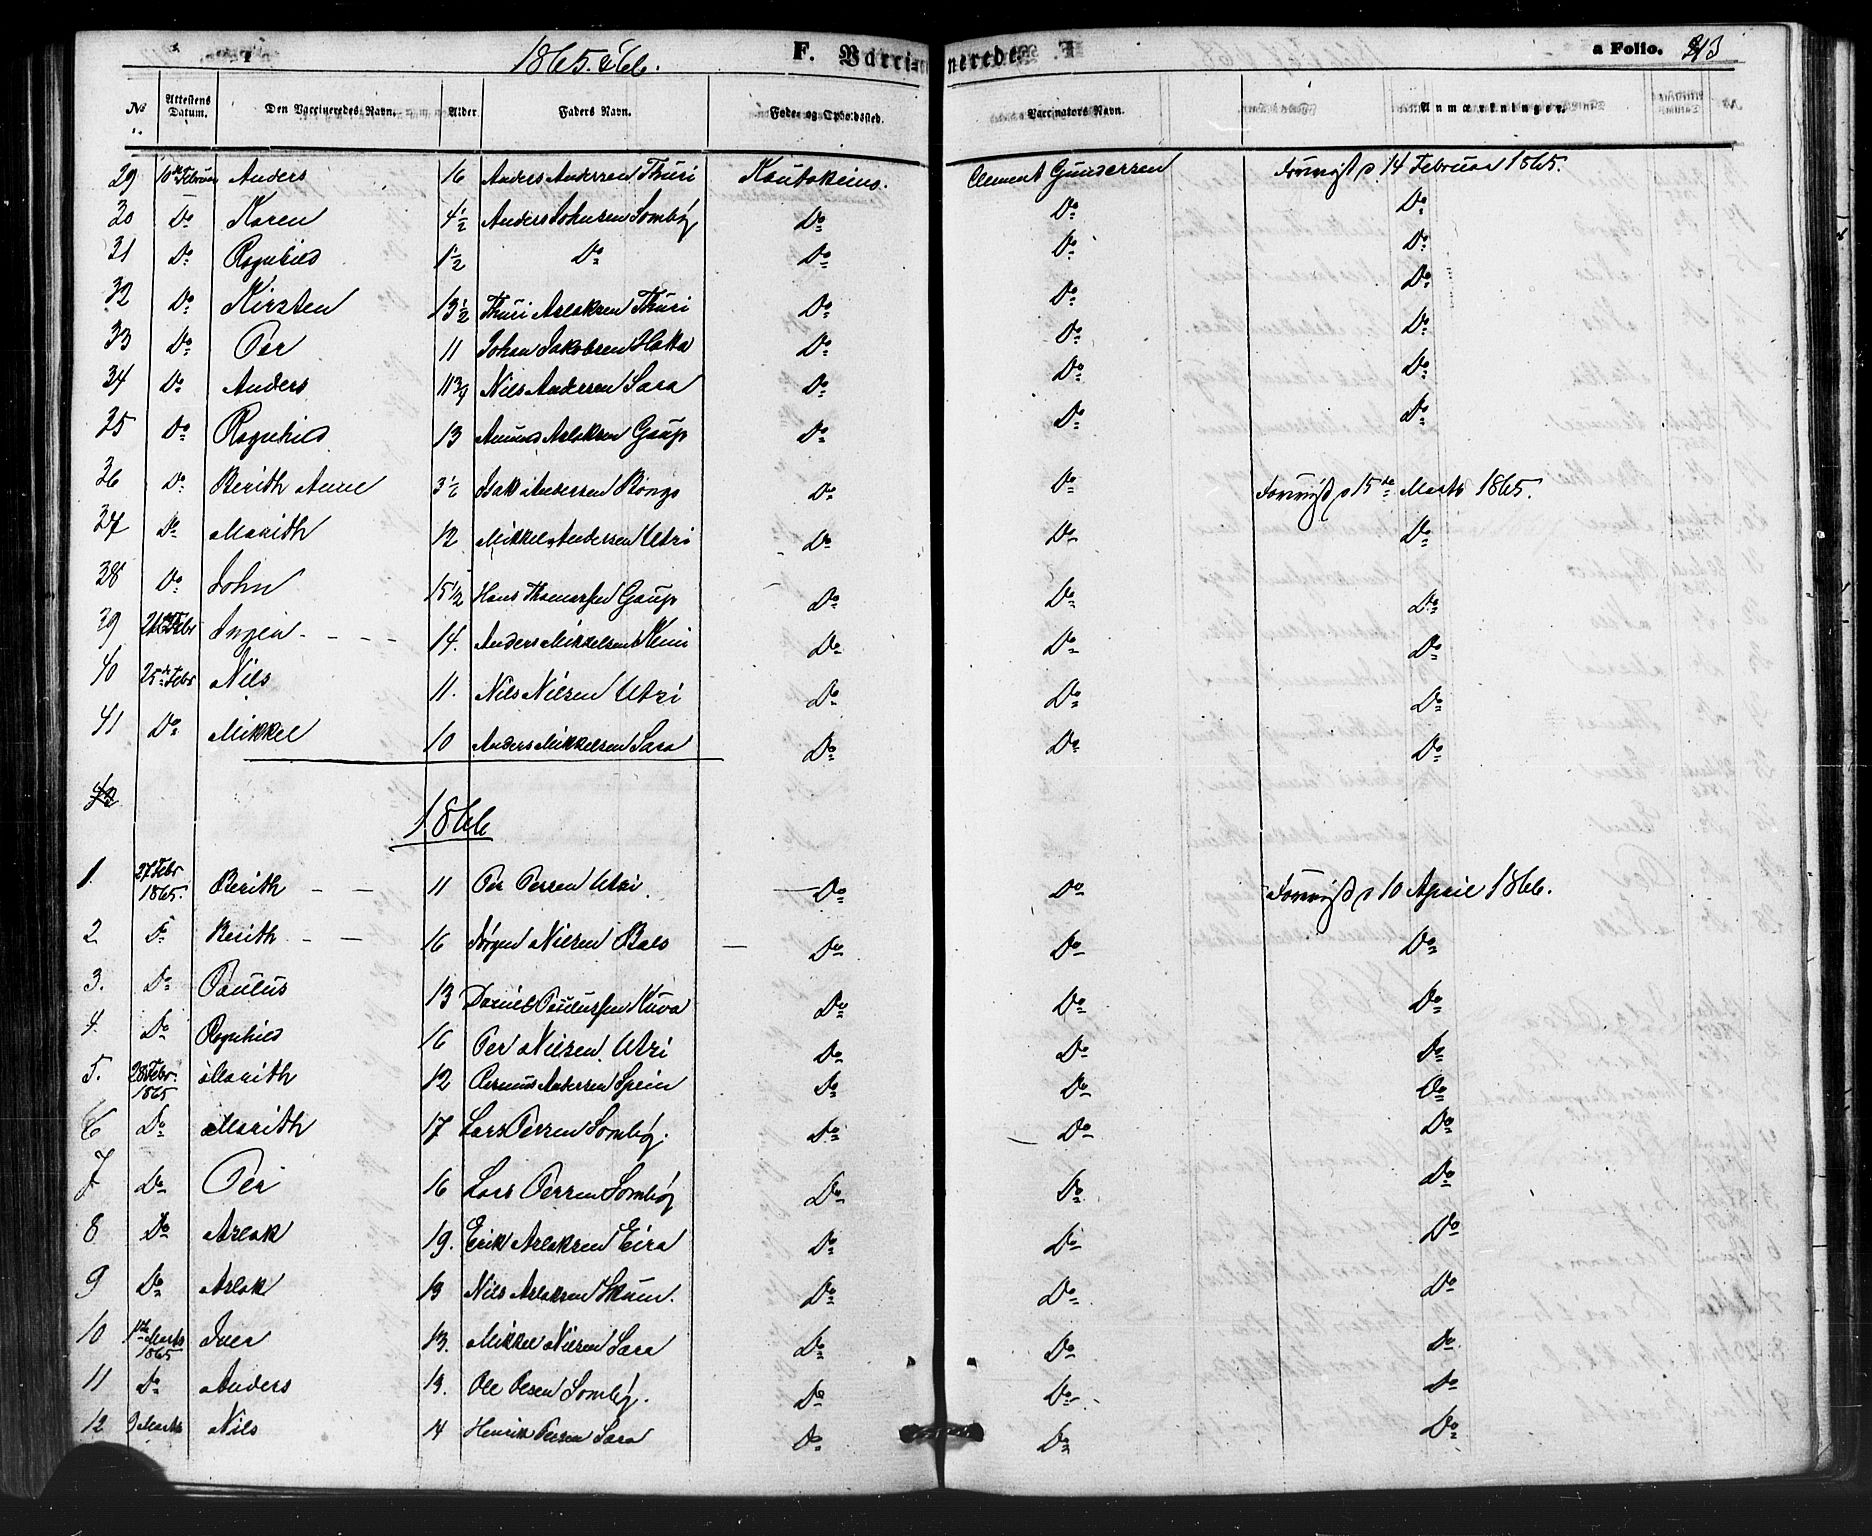 1865 & 66. F. Vaccinerede. a Folio. 213
No Attestens Datum. Den Vaccineredes Navn. Alder. Faders Navn. Føde- og Opholdssted. Vaccinators Navn. Anmærkninger.
29 10de Februar Anders 16 Anders Andersen Thuri Kautokeino. Clement Gundersen Forevist d. 14 Februar 1865.
30 Do Karen 4½ Anders Johnsen Sombÿ Do Do Do
31 Do Ragnhild 1½ Do Do Do Do
32 Do Kirsten 13½ Thuri Aslaksen Thuri Do Do Do
33 Do Per 11 Johan Jakobsen Hætta Do Do Do
34 Do Anders 11¾ Nils Andersen Sara Do Do Do
35 Do Ragnhild 13 Amund Aslaksen Gaup Do Do Do
36 Do Berith Anne Isak Andersen Bongo Do Do Forevist d 15de Marts 1865.
37 Do Marith 12 Mikkel Andersen Utzi Do Do Do
38 Do John 15½ Hans Thomassen Gaup Do Do Do
39 Febr Inger 14. Anders Mikkelsen Kemi Do Do Do
40 25de Febr Nils 11. Nils Nilsen Utzi Do Do Do
41 Do Mikkel 10 Anders Mikkelsen Sara Do Do Do
42
1866
1. 27 Febr 1865. Berith 11 Per Persen Utzi. Do Do Forevist d 10 April 1866.
2 Do Berith 16 Jørgen Nilsen Bals Do Do Do
3. Do Paulus 13 Daniel Paulussen Kuva Do Do Do
4. Do Ragnhild 16 Per Nilsen Utzi Do Do Do
5. 28 Febr. 1865 Marith 12 Rasmus Andersen Spein Do Do Do
6 Do Marith 17 Lars Persen Sombÿ. Do Do Do
7 Do Per 16 Lars Persen Sombÿ Do Do Do
8 Do Aslak 19. Erik Aslaksen Eira Do Do Do
9 Do Aslak 13 Nils Aslaksen Skum. Do Do Do
10 1ste Marts 1865 Iver 13. Mikkel Nilsen Sara Do Do Do
11 Do Anders 13. Ole Olsen Sombÿ. Do Do Do
12 9 Marts Nils 14 Henrik Persen Sara Do Do Do